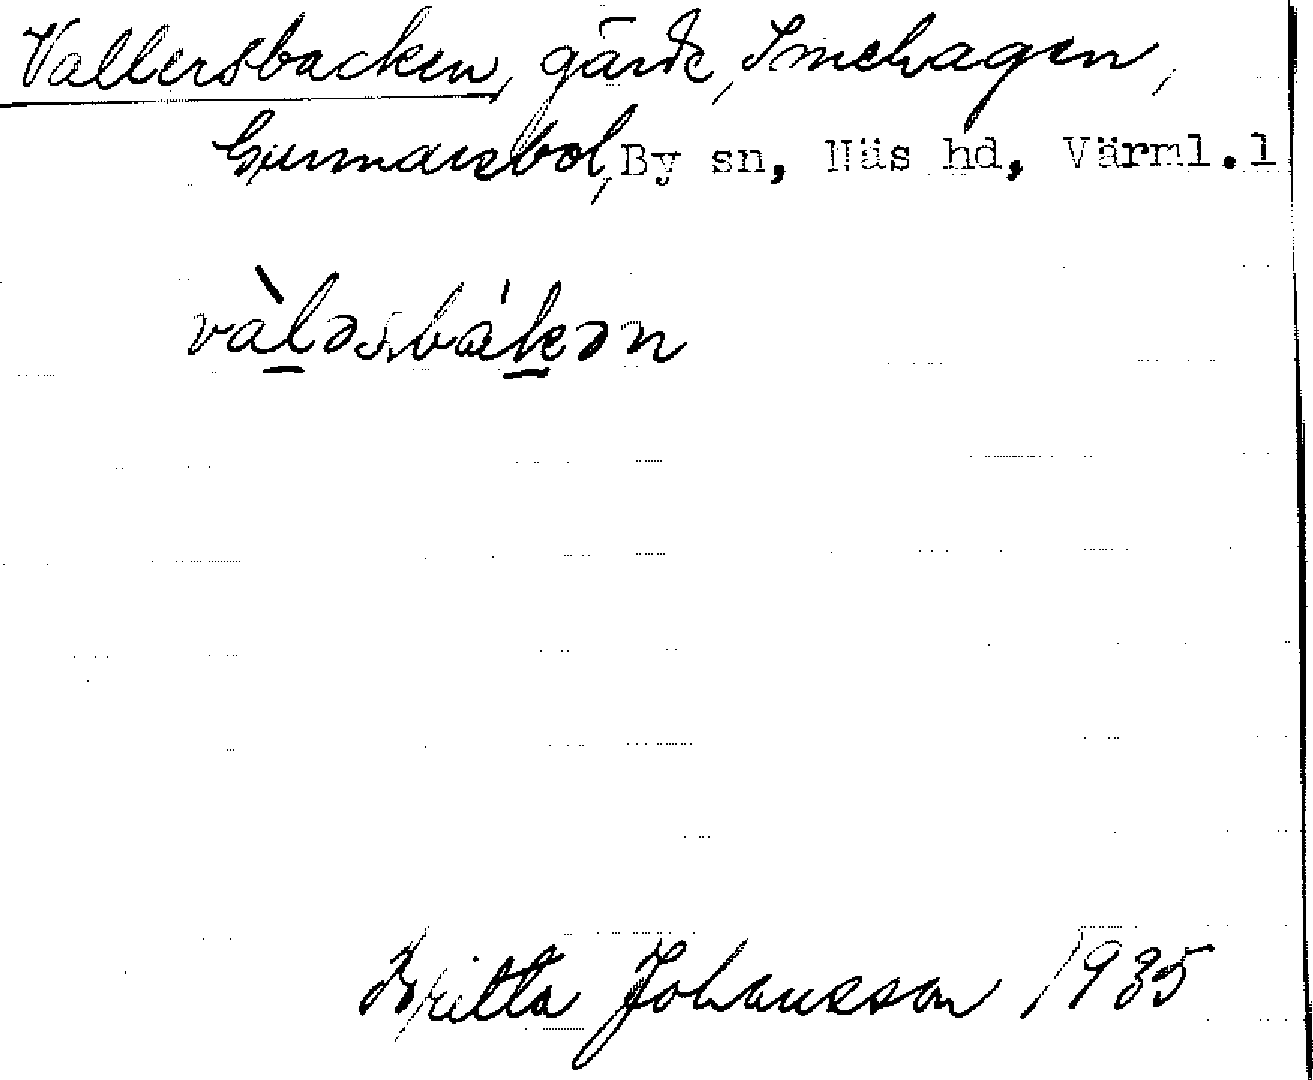 Vallersbacken, gärde, Smehagen,
Gunnarsbol, By sn, Näs hd, Värml.l
vàləsbákən
Britta Johansson 1935